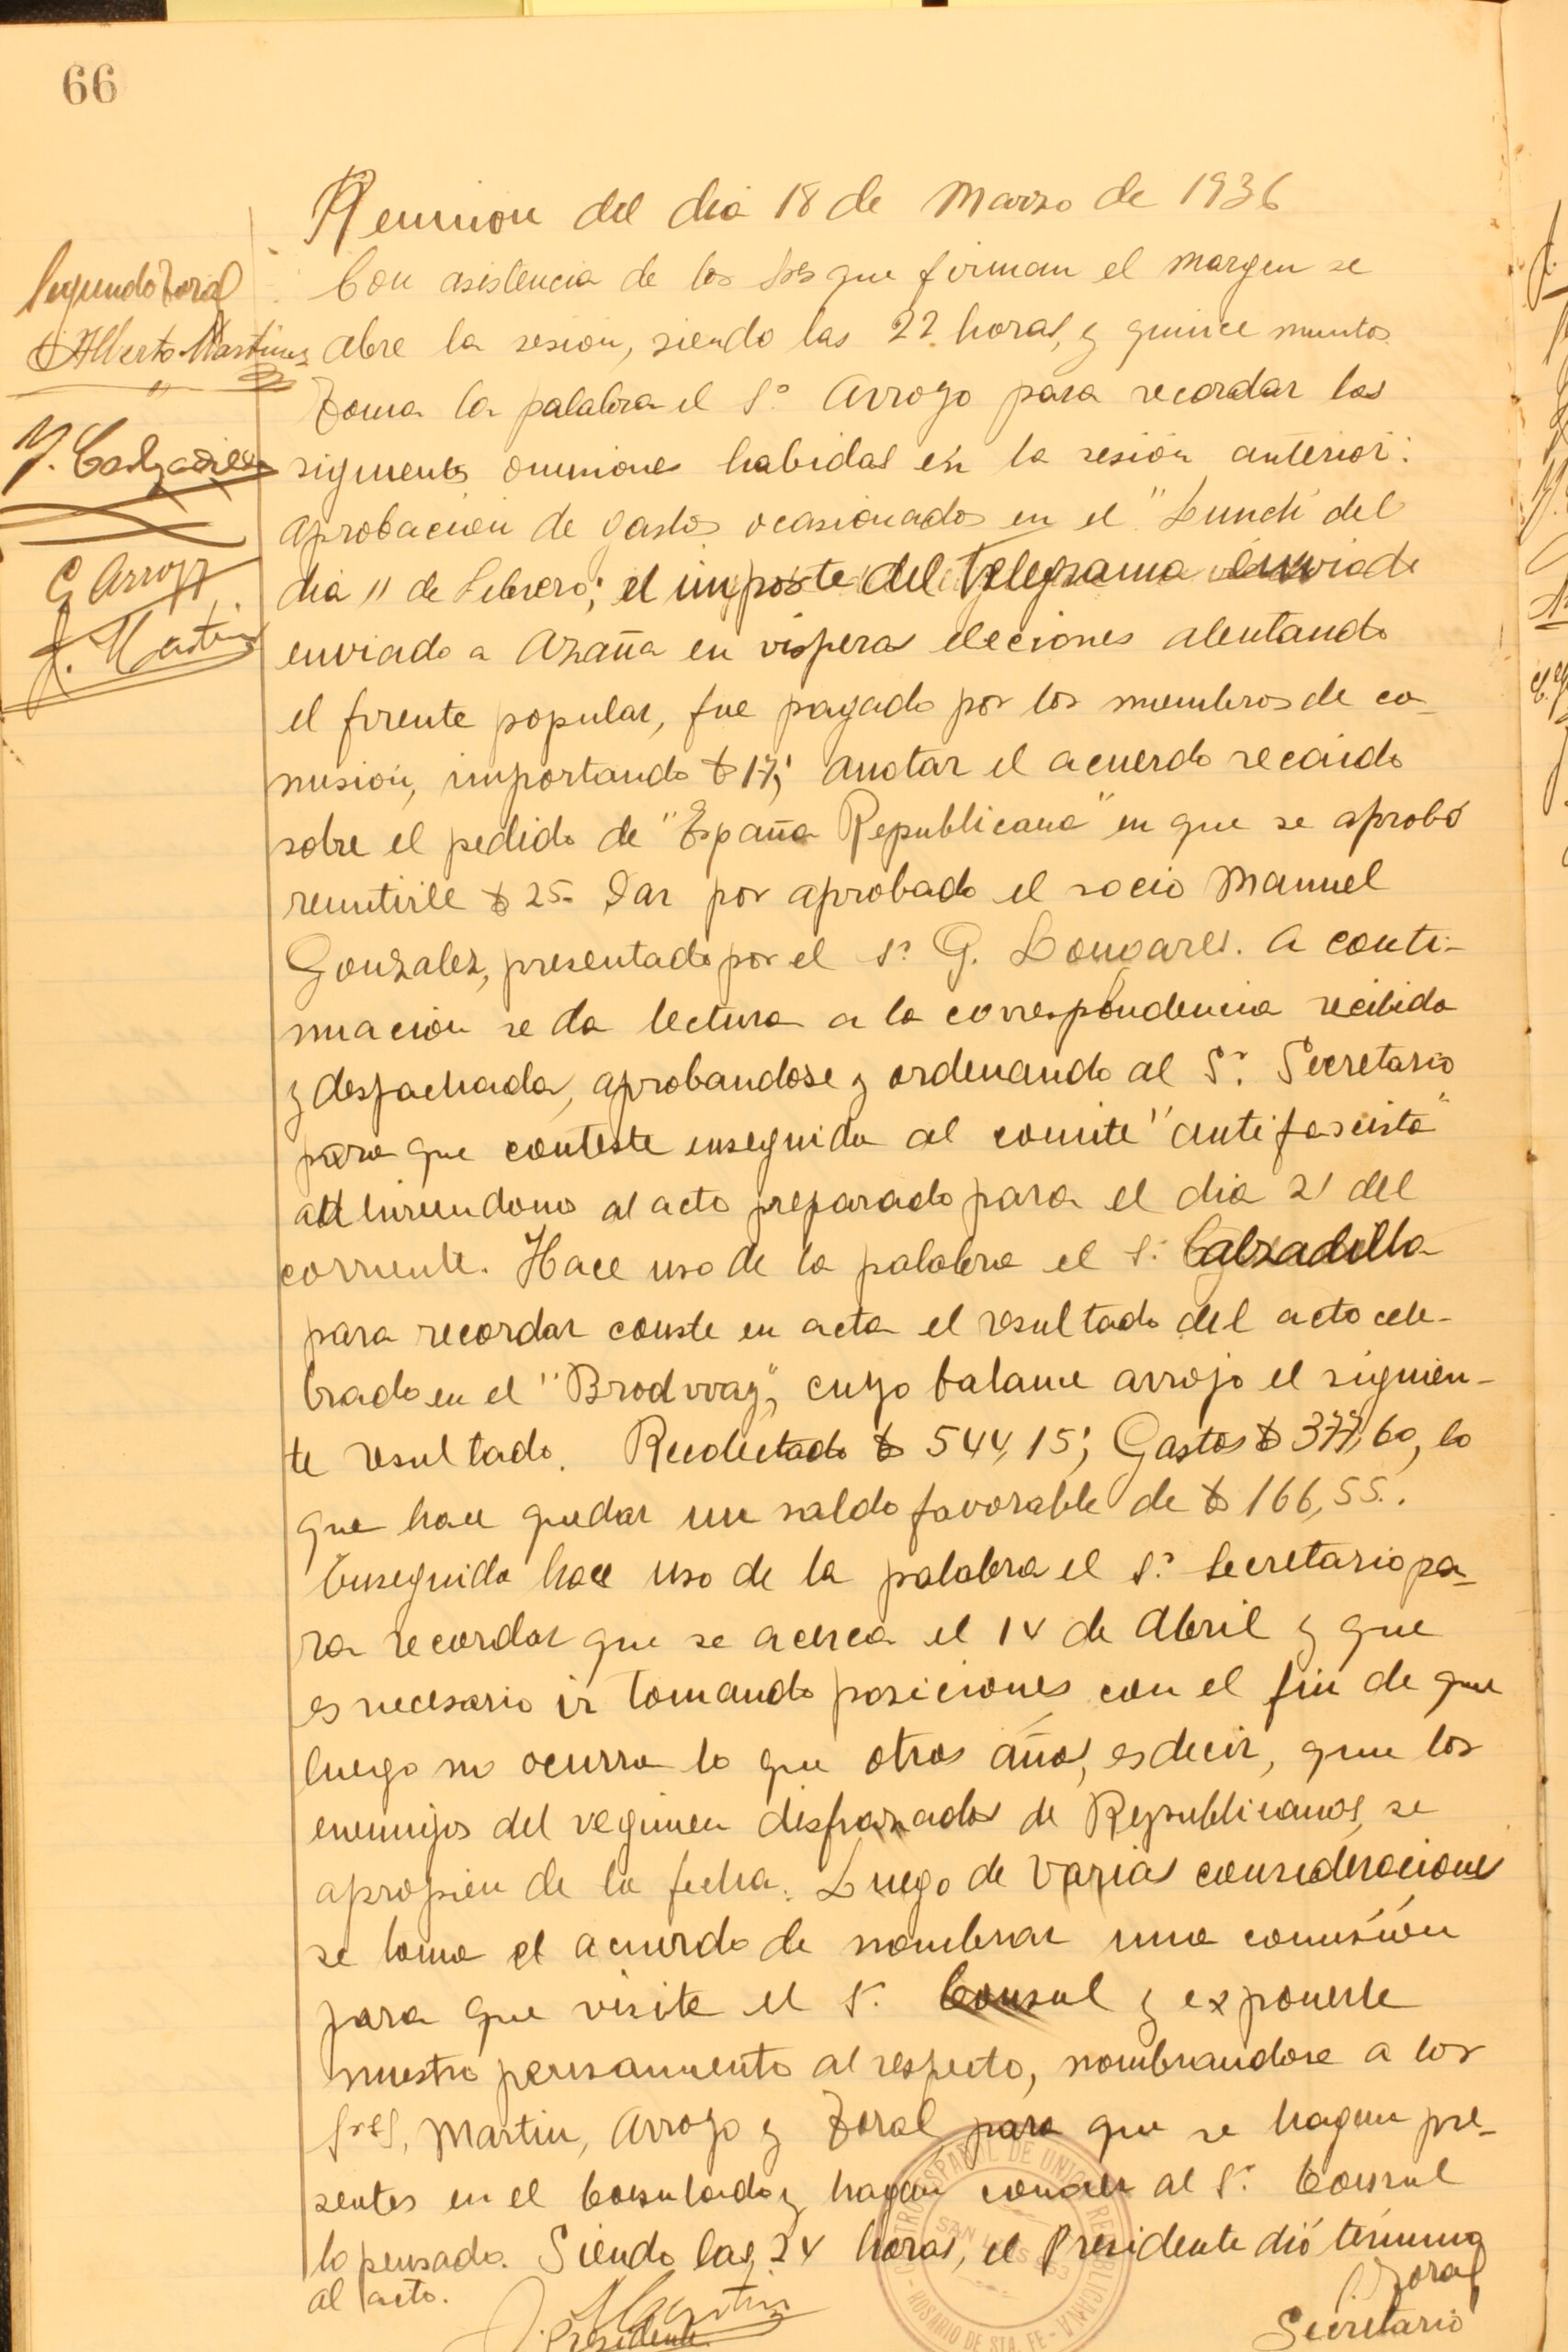 66
Reunion del dia 18 de Marzo de 1936
Segundo Toral
Alberto Martinez
Y. Calzadilla
G Arroyo
J. Martin
Con asistencia de los Sres que firman el margen se
abre la sesión, siendo las 22 horas, y quince minutos.
Toma la palabra el Sr. Arroyo para recordar las
siguientes omisiones habidas en la sesión anterior:
aprobación de gastos ocasionados en el "Lunch" del
dia 11 de Febrero; el importe del telegrama enviado
enviado a Azaña en visperas elecciones alentando
el frente popular, fue pagado por los miembros de co-
misión, importando $ 17; anotar el acuerdo recaido
sobre el pedido de "España Republicana" en que se aprobó
remitirle $ 25- Dar por aprobado el socio Manuel
Gonzalez, presentado por el Sr. G. Longares. A conti-
nuación se da lectura a la correspondencia recibida
y despachada, aprobandose y ordenando al Sr. Secretario
para que conteste enseguida al comite "antifascista"
adhiriendonos al acto preparado para el dia 21 del
corriente. Hace uso de la palabra el Sr. Calzadilla
para recordar conste en acta el resultado del acto cele-
brado en el "Brodway", cuyo balance arrojo el siguien-
te resultado. Recolectado $ 544,15; Gastos $ 377,60, lo
que hace quedar un saldo favorable de $ 166,55.
Enseguida hace uso de la palabra el Sr. Secretario pa-
ra recordar que se acerca el 14 de Abril y que
es necesario ir tomando posiciones con el fin de que
luego no ocurra lo que otros años, es decir, que los
enemigos del regimen disfrazados de Republicanos, se
apropien de la fecha. Luego de varias consideraciones
se toma el acuerdo de nombrar una comisión
para que visite el Sr. Consul y exponerle
nuestro pensamiento al respecto, nombrandose a los
Sres, Martin, Arroyo y Toral para que se hagan pre-
sentes en el Consulado y hagan conocer al Sr. Consul
lo pensado. Siendo las 24 horas, el Presidente dió termino
al acto.
J. Martin
Presidente
S. Toral
Secretario
CENTRO ESPAÑOL DE UNION REPUBLICANA
SAN LUIS
- ROSARIO DE STA. FE -